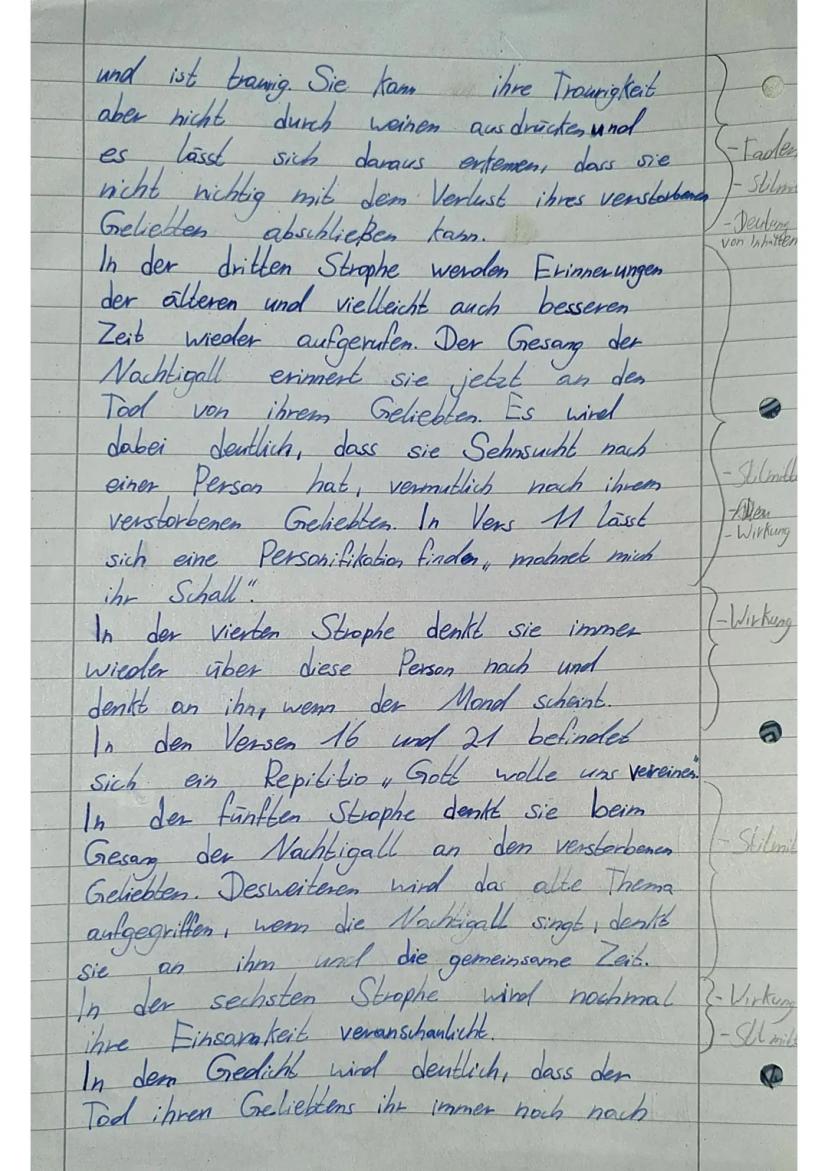 und ist traurig. Sie kann ihre Traurigkeit
aber nicht durch weinen ausdrücken und
es lässt sich daraus erkennen, dass sie
nicht richtig mit dem Verlust ihres verstorbenen
Geliebten abschließen kann.
In der dritten Strophe werden Erinnerungen
der älteren und vielleicht auch besseren
Zeit wieder aufgerufen. Der Gesang der
Nachtigall erinnert sie jetzt an den
Tod von ihrem Geliebten. Es wird
dabei deutlich, dass sie Sehnsucht nach
einer Person hat, vermutlich nach ihrem
verstorbenen Geliebten. In Vers 11 lässt
sich eine Personifikation finden „mahnet mich
ihr Schall“.
In der vierten Strophe denkt sie immer
wieder über diese Person nach und
denkt an ihn, wenn der Mond scheint.
In den Versen 16 und 21 befindet
sich ein Repititio „Gott wolle uns vereinen“
In der fünften Strophe denkt sie beim
Gesang der Nachtigall an den verstorbenen
Geliebten. Desweiteren wird das alte Thema
aufgegriffen, wenn die Nachtigall singt, denkt
sie an ihm und die gemeinsame Zeit.
In der sechsten Strophe wird nochmal
ihre Einsamkeit veranschaulicht.
In dem Gedicht wird deutlich, dass der
Tod ihren Geliebtens ihr immer noch nach
- Stilmi
- Deutung
von Inhalten
- Stilmitt
- Wirkung
- Wirkung
- Stilmit
- Wirkung
- Stilmit